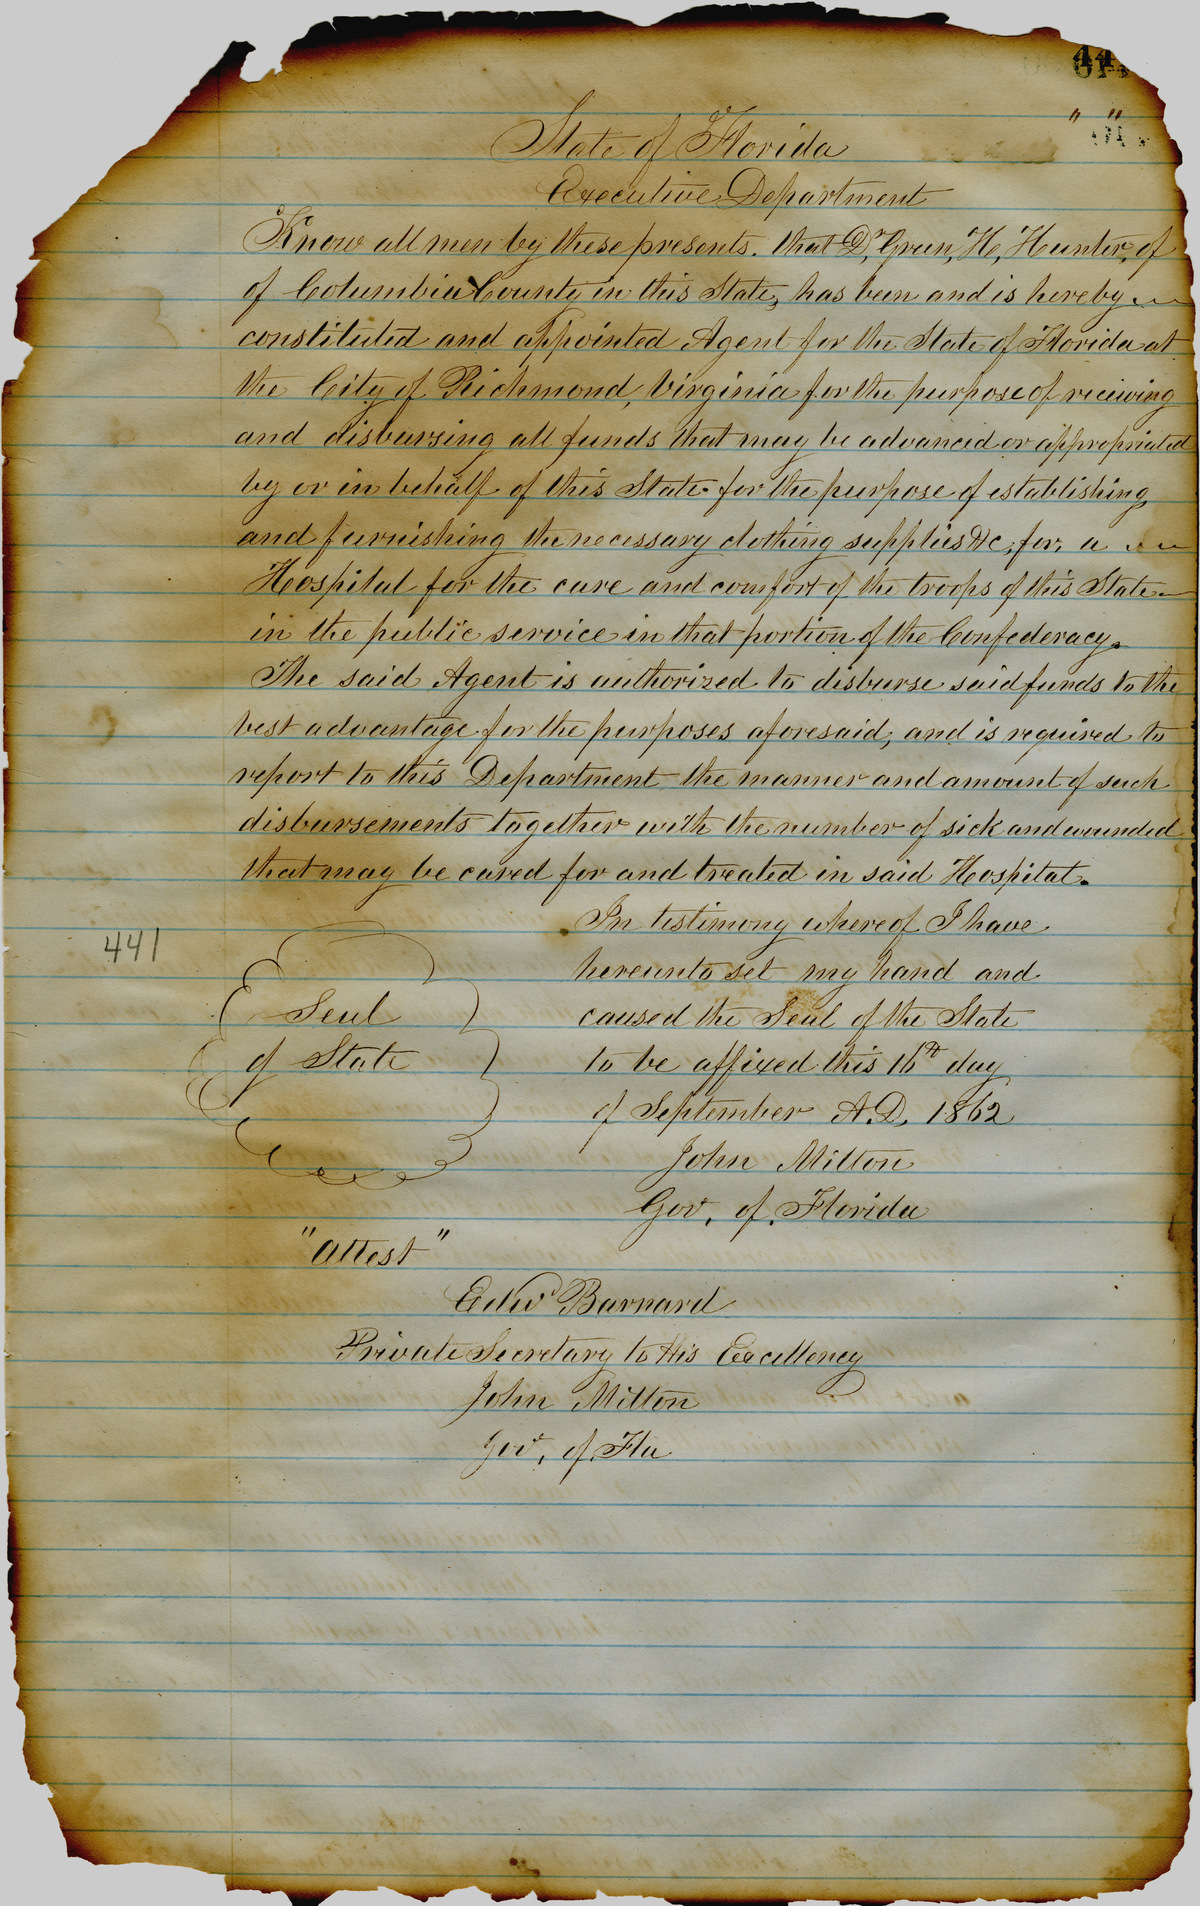 441
" "
State of Florida
Executive Department
Know all men by these presents. that Dr, Green, H, Hunter, of
of Columbia County in this State, has been and is hereby
constituted and appointed Agent for the State of Florida at
the City of Richmond, Virginia for the purpose of receiving
and disbursing all funds that may be advanced or appropriated
by or in behalf of this State for the purpose of establishing
and furnishing the necessary clothing supplies &c, for, a
Hospital for the care and comfort of the troops of this State
in the public service in that portion of the Confederacy.
The said Agent is authorized to disburse said funds to the
best advantage for the purposes aforesaid, and is required to
report to this Department the manner and amount of such
disbursements together with the number of sick and wounded
that may be cared for and treated in said Hospital.
In testimony whereof I have
441
hereunto set my hand and
Seal
caused the Seal of the State
of State
to be affixed this 16th day
of September A.D. 1862
John Milton
Gov. of. Florida
"Attest"
Edwd Barnard
Private Secretary to His Excellency
John Milton
Gov. of. Fla